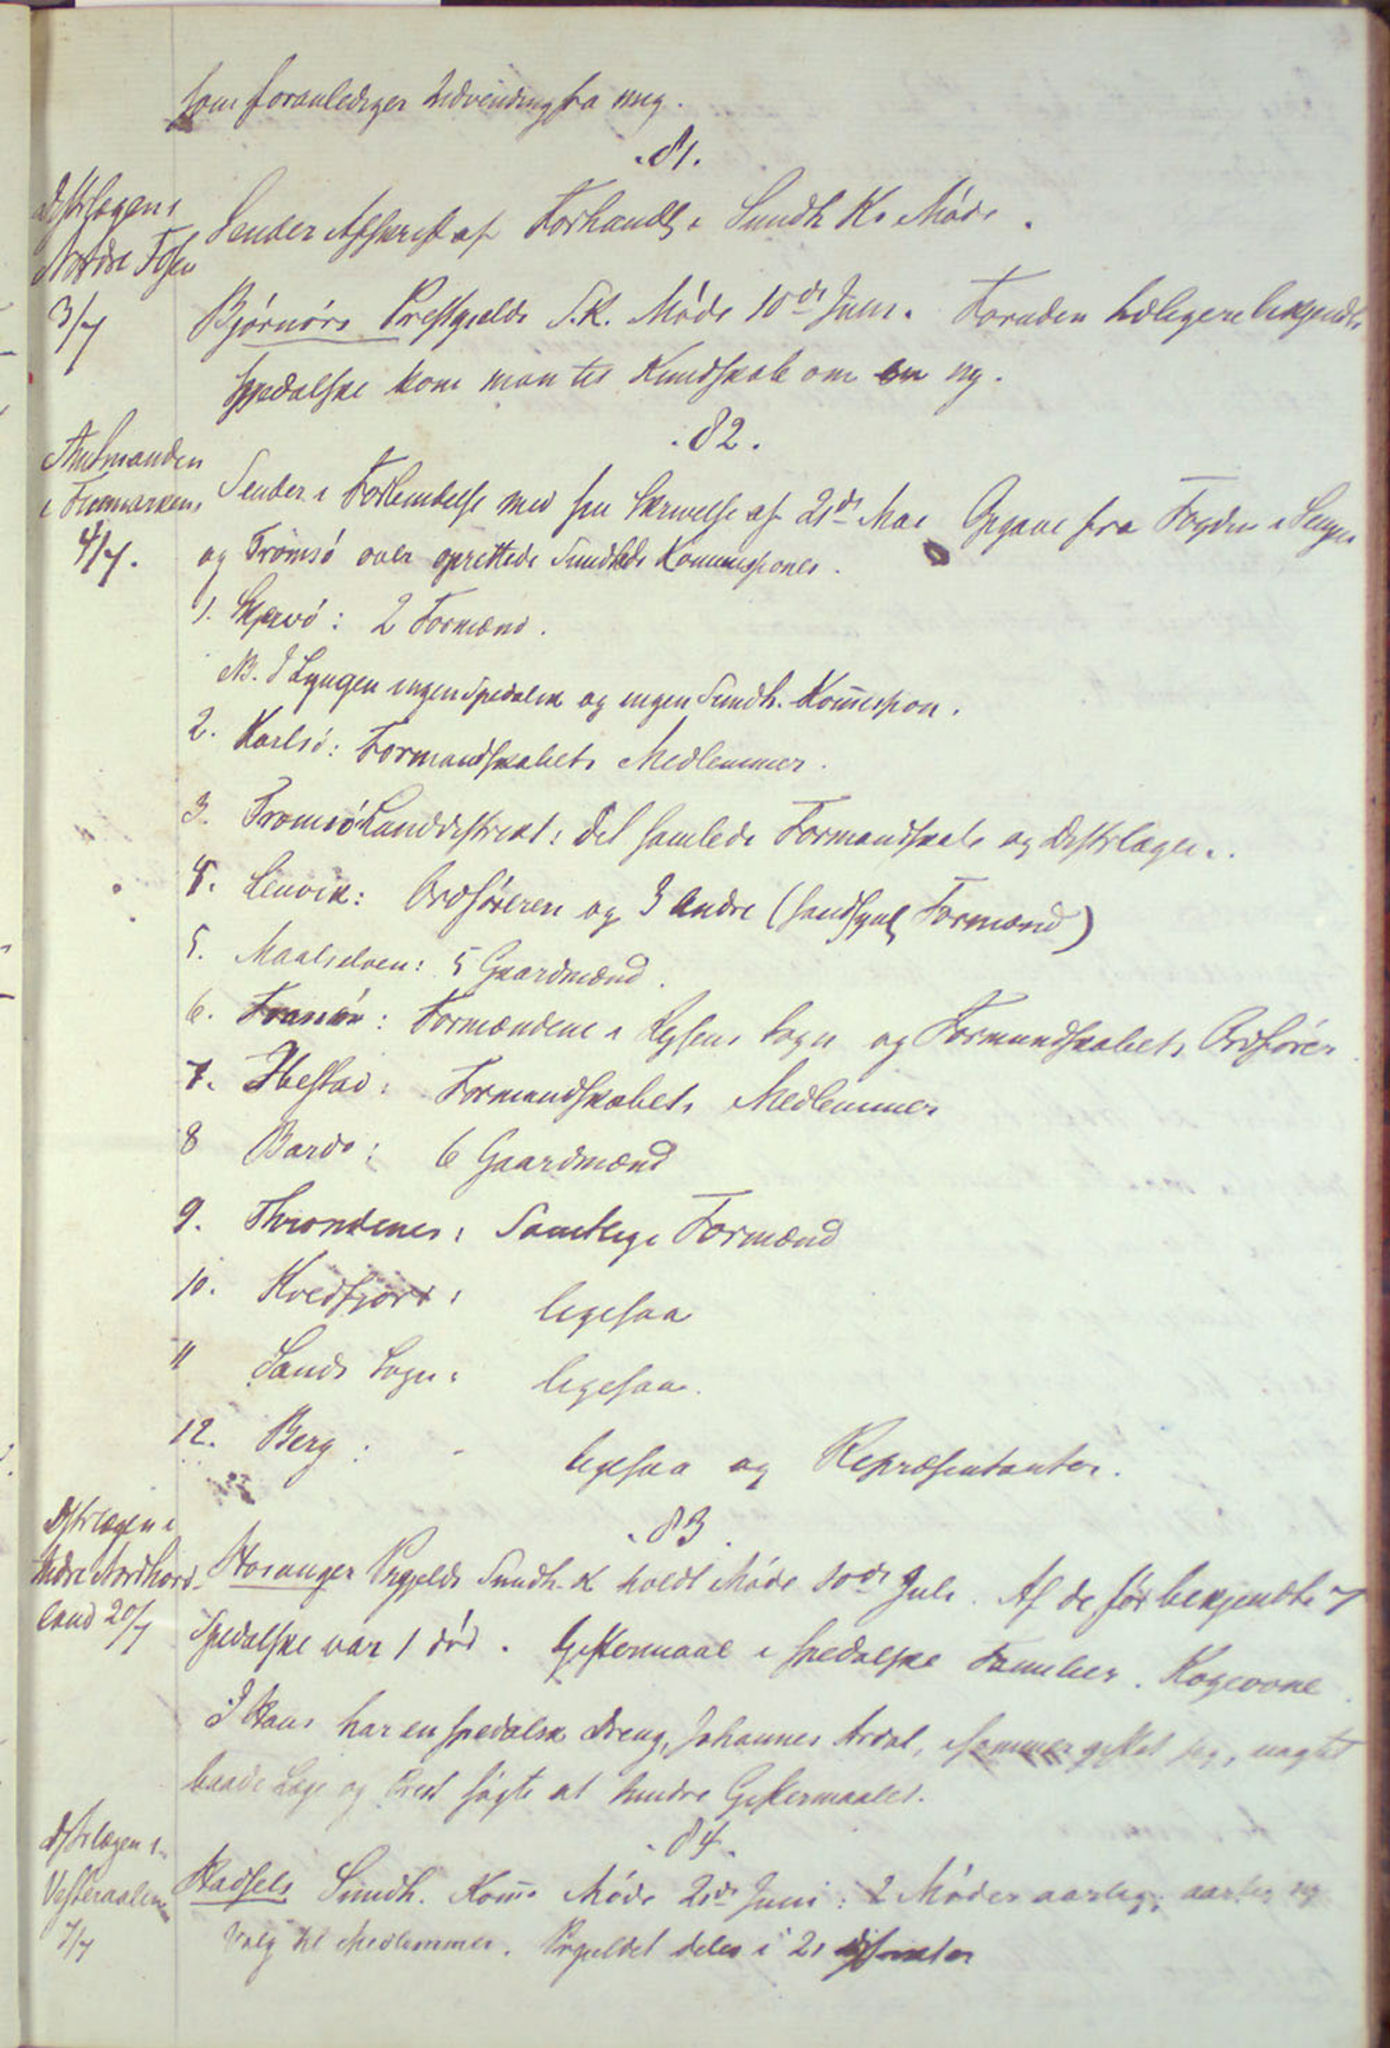 som foranlediger Indvending fra mig.
81.
Distrlægen i
Nordre Fosen
3/7
Sender Afskrift af Forhandl. i Sundh Ks Møde.
Bjørnørs Prestgjelds S.K. Møde 10de Juni. Foruden tidligere bekjendte
spedalske kom man til Kundskab om en ny.
82.
Amtmanden
i Finmarken
4/7.
Sender i Forbindelse med sin Skrivelse af 21de Mai Opgave fra Fogden i Senjen
og Tromsø over oprettede Sundheds Kommissioner.
1. Skjervø: 2 Formænd.
NB. I Lyngen ingen Spedalsk og ingen Sundh. Kommission.
2. Karlsø: Formandskabets Medlemmer.
3. Tromsø Landdistrikt: Det samlede Formandskab og Distrlægen.
4. Lenvik: Ordføreren og 3 Andre (sandsynl Formænd)
5. Maalselven: 5 Gaardmænd.
6. Tranøe: Formændene i Sogn og Formandskabets Ordfører
7. Ibestad: Formandskabets Medlemmer
8 Bardo: 6 Gaardmænd
9. Throndenes: Samtlige Formænd
10. Kvedfjord: ligesaa
11 Sands Sogn: ligesaa.
12. Berg: - ligesaa og Repræsentanter.
83.
Dstrlægen i
Indre Nordhord-
land 20/7
Hosanger Prgjelds Sundh. K holdt Møde 10de Juli. Af de før bekjendte 7
Spedalske var 1 død. Giftermaal i spedalske Familier. Kogeovne
I Høst har en spedalsk Dreng, Johannes Ardal, giftet sig, uagtet
baade Læge og Prest søgte at hindre Giftermaalet.
84.
Dstrlægen i
Vesteraalen
7/7
Hadsels Sundh. Komms Møde 21de Juni: 2 Møder aarlig; aarlig ny
Valg til Medlemmer. Prgjeldet deles i 21 distrikter